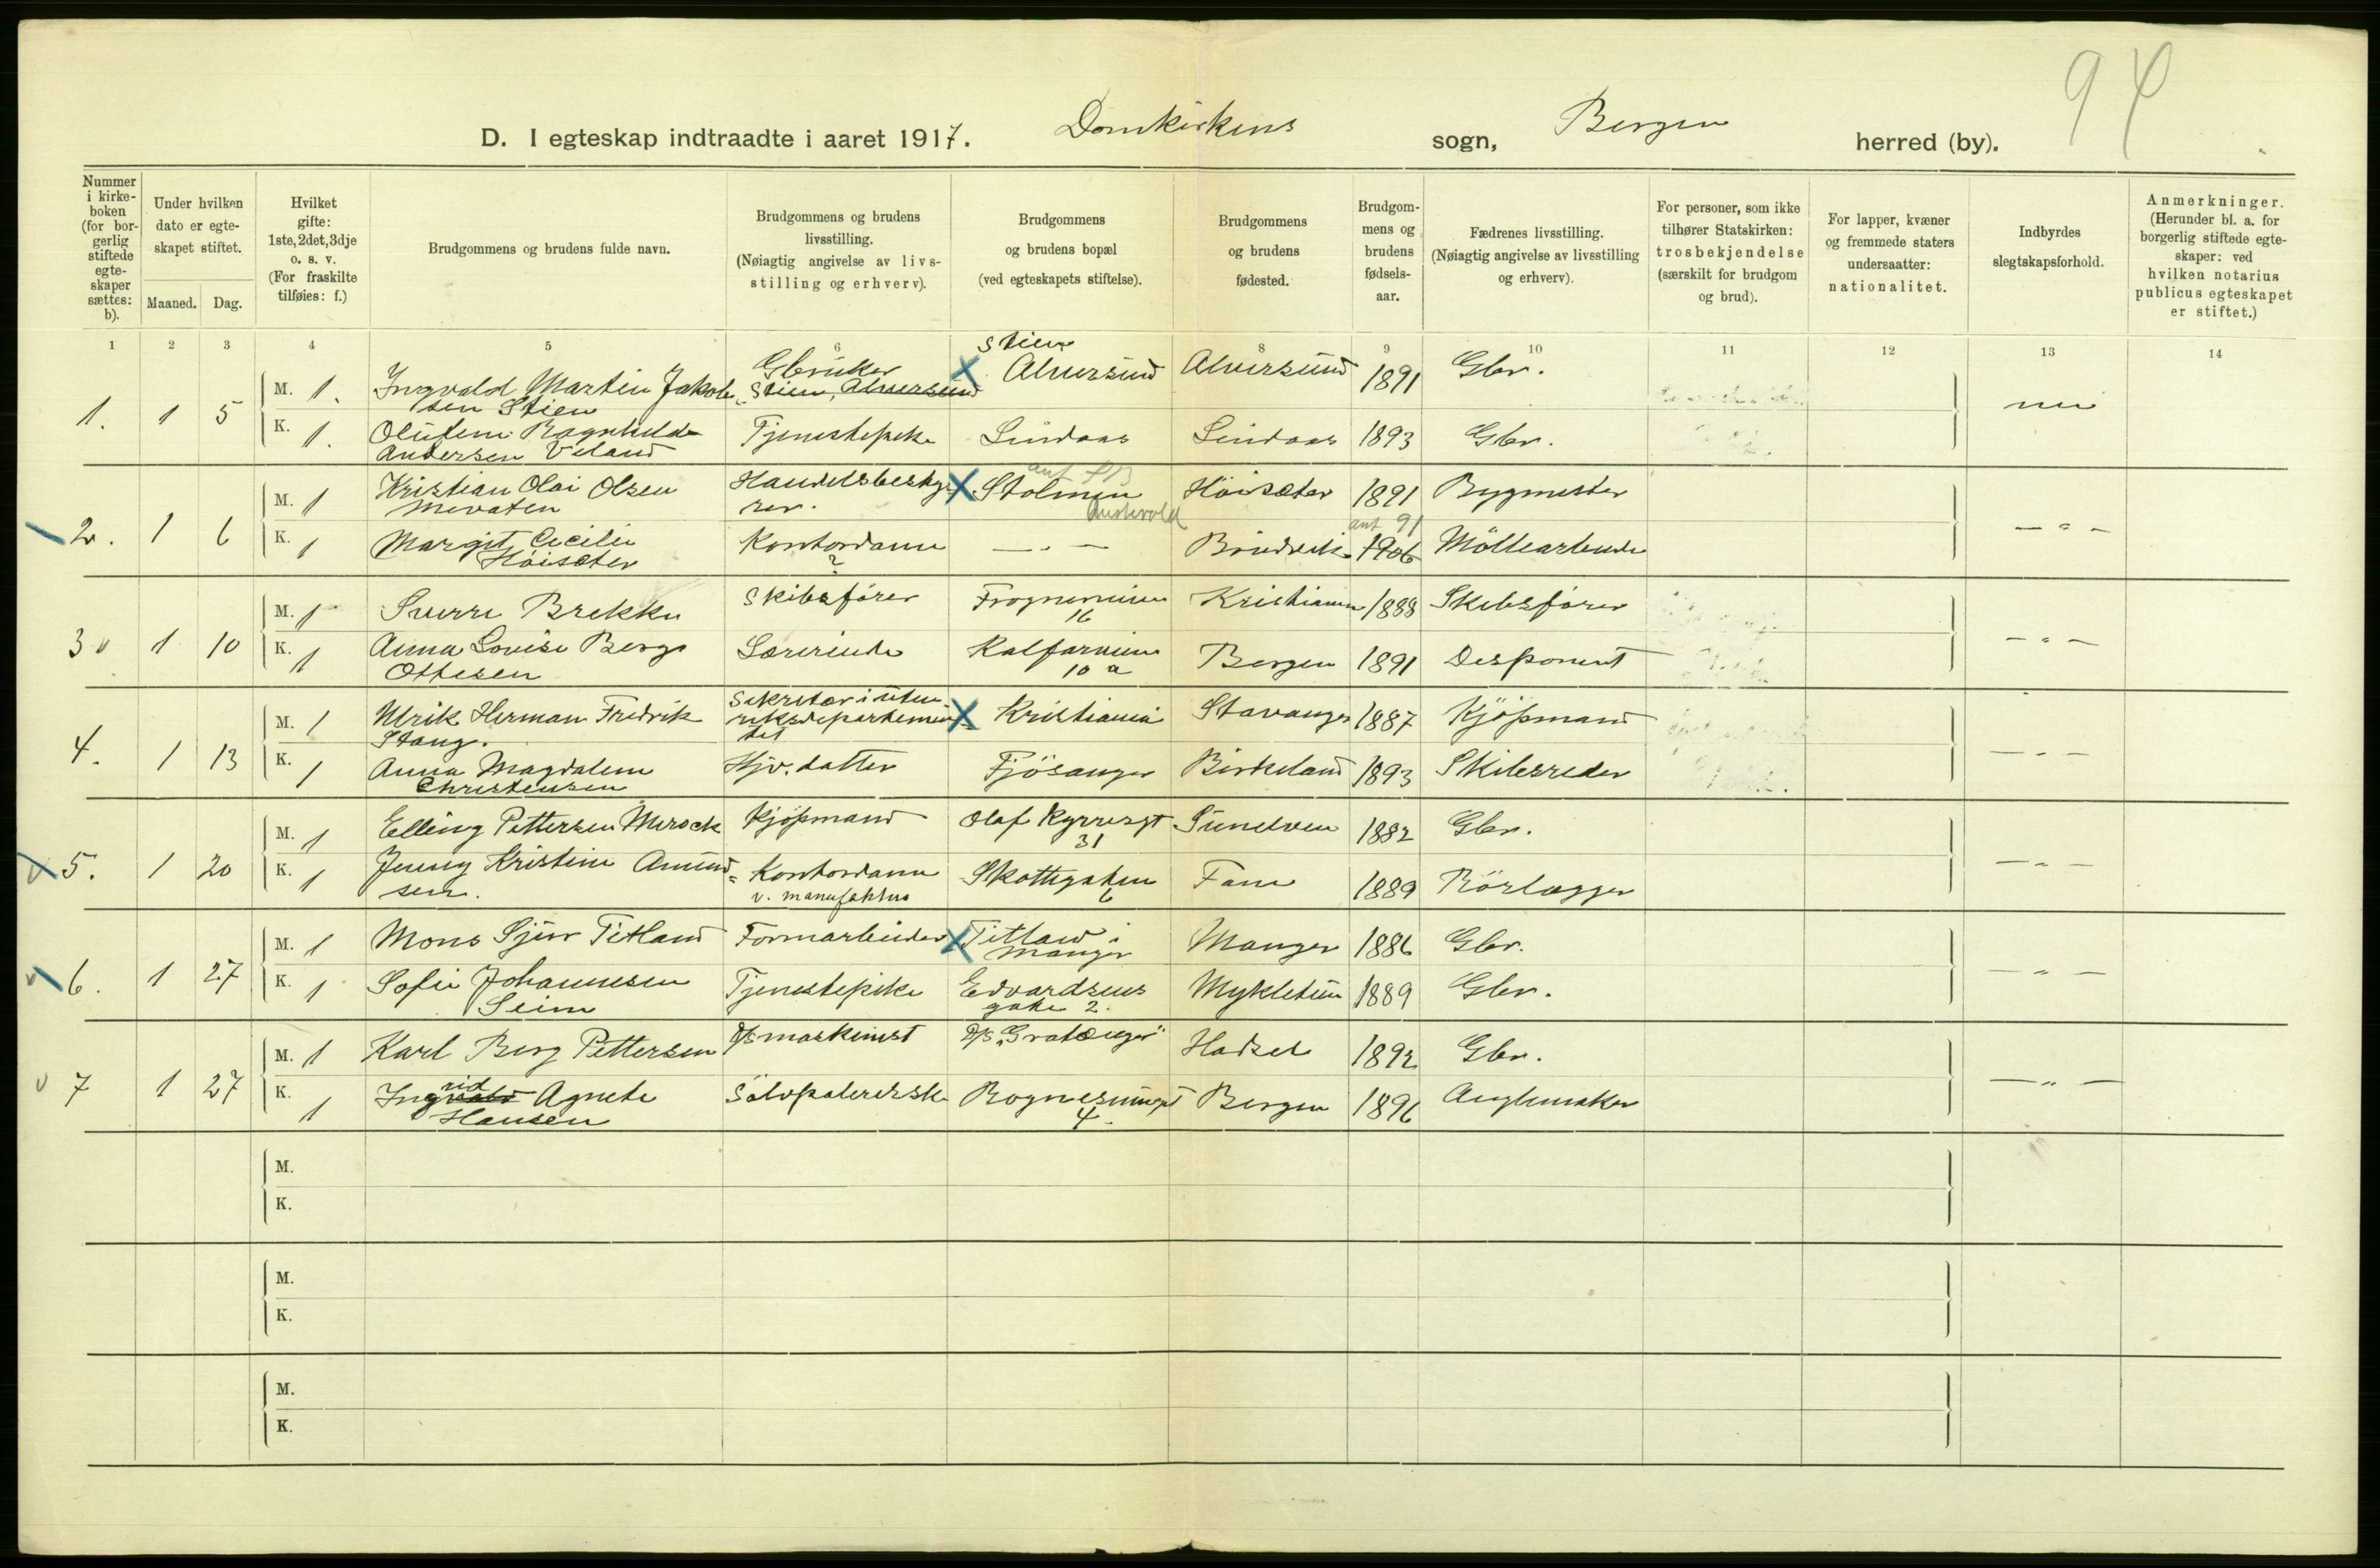 94
D. I egteskap indtraadte i aaret 1917. Domkirkens sogn, Bergen herred (by).
Nummer i kirke-boken (for bor-gerlig stiftede egte-skaper sættes: b).
Under hvilken dato er egte-skapet stiftet.
Maaned. Dag.
Hvilket gifte: 1ste, 2det, 3dje o. s. v. (For fraskilte tilføies: f.)
Brudgommens og brudens fulde navn.
Brudgommens og brudens livsstilling. (Nøiagtig angivelse av livs-stilling og erhverv).
Brudgommens og brudens bopæl (ved egteskapets stiftelse).
Brudgommens og brudens fødested.
Brudgom-mens og brudens fødsels-aar.
Fædrenes livsstilling. (Nøiagtig angivelse av livsstilling og erhverv).
For personer, som ikke tilhører Statskirken: trosbekjendelse (særskilt for brudgom og brud).
For lapper, kvæner og fremmede staters undersaatter: nationalitet.
Indbyrdes slegtskapsforhold.
Anmerkninger. (Herunder bl. a. for borgerlig stiftede egte-skaper: ved hvilken notarius publicus egteskapet er stiftet.)
1 2 3 4 5 6 8 9 10 11 12 13 14
1. 1 5 M. 1. Ingvald Martin Jakob-sen Stien Gbruker Stien, Alversund Stien Alversund Alversund 1891 Gbr. nei
K. 1. Olufine Ragnhilda Andersen Viland Tjenestepike Lindaas Lindaas 1893 Gbr.
2. 1 6 M. 1 Kristian Olai Olsen Møvaten Handelsbesty-rer. Stolmen Austevold Höisæter 1891 Bygmester — " —
K. 1 Margit Cecilie Höisæter Kontordame ? — " — Brudvik 1906 ant 91 Möllearbeider
3 1 10 M. 1 Sverre Brekke Skibsförer Frognerveien 16 Kristiania 1888 Skibsförer — " —
K. 1 Anna Lovise Berge Ottesen Lærerinde Kalfarveien 10 a Bergen 1891 Disponent
4. 1 13 M. 1 Ulrik Herman Fredrik Stang. Sekretær i uten-riksdepartemen-tet Kristiania Stavanger 1887 Kjöpmand — " —
K. 1 Anna Magdalene Christensen Hjv. datter Fjösanger Birkeland 1893 Skibsreder
5. 1 20 M. 1 Elling Pettersen Merock Kjöpmand Olaf Kyrresgt 31 Sunelven 1882 Gbr. — " —
K. 1 Jenny Kristine Amund-sen. Kontordame v. manufaktur Skottegaten 6 Fane 1889 Rörlægger
6. 1 27 M. 1 Mons Sjur Titland Formarbeider Titland i Manger Manger 1886 Gbr. — " —
K. 1 Sofie Johannesen Seim Tjenestepike Edvardsens gate 2. Mykletun 1889 Gbr.
7 1 27 M. 1 Karl Berg Pettersen D/S maskinist D/S "Gratanger" Hadsel 1892 Gbr. — " —
K. 1 Ingrid Agnete Hansen Sölvpolererske Rognesmuget 4. Bergen 1896 Anglemaker
M.
K.
M.
K.
M.
K.